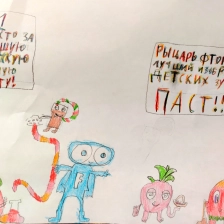 И
СТО ЗА
ШУЮ
СКУЮ
ТУ!
РЫЦАРЬ ФТОР
ЛУЧШИЙ ИЗОБР
ДЕТСКИХ ЗУ
ПАСТ!!
F